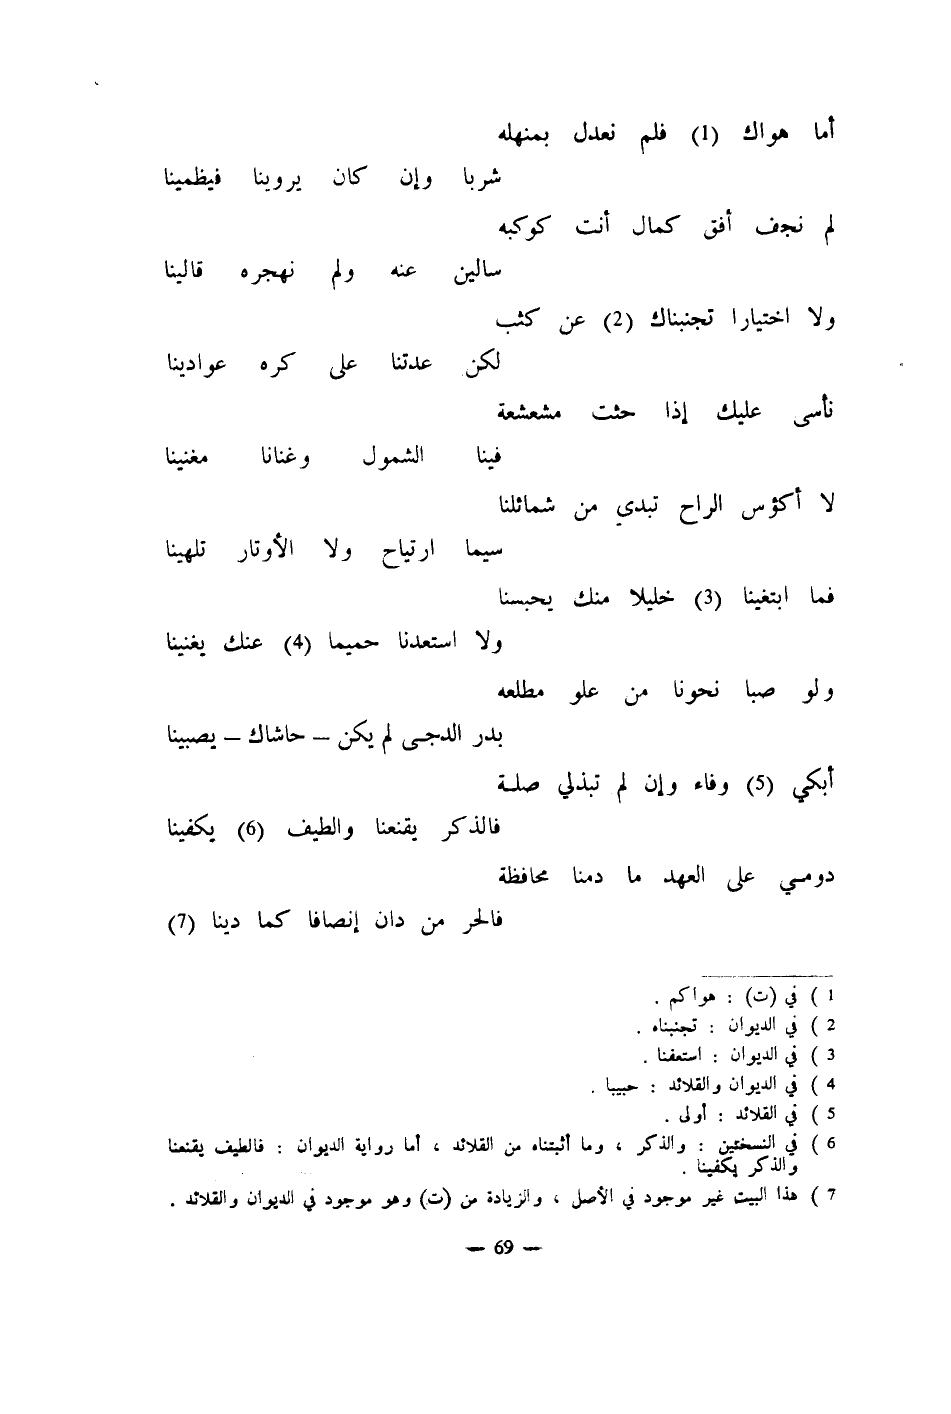 أما هواك (1) فلم نعدل بمنهله
شربا وإن كان يروينا فيظمينا
لم نجف أفق كمال أنت كوكبه
سالين عنه ولم نهجره قالينا
ولا اختيارا تجنبناك (2) عن كثب
لكن عدتنا على كره عوادينا
نأسى عليك إذا حثت مشعشعة
فينا الشمول وغنانا مغنينا
لا أكؤس الراح تبدي من شمائلنا
سيما ارتياح ولا الأوتار تلهينا
فما ابتغينا (3) خليلا منك يحبسنا
ولا استعدنا حميما (4) عنك يغنينا
ولو صبا نحونا من علو مطلعه
بدر الدجى لم يكن — حاشاك — يصبينا
أبكي (5) وفاء وإن لم تبذلي صلة
فالذكر يقنعنا والطيف (6) يكفينا
دومي على العهد ما دمنا محافظة
فالحر من دان إنصافا كما دينا (7)
1 ) في (ت) : هواكم .
2 ) في الديوان : تجنبناه .
3 ) في الديوان : استعفنا .
4 ) في الديوان والقلائد : حبيبا .
5 ) في القلائد : أولى .
6 ) في النسختين : والذكر ، وما أثبتناه من القلائد ، أما رواية الديوان : فالطيف يقنعنا
والذكر يكفينا .
7 ) هذا البيت غير موجود في الأصل ، والزيادة من (ت) وهو موجود في الديوان والقلائد .
— 69 —